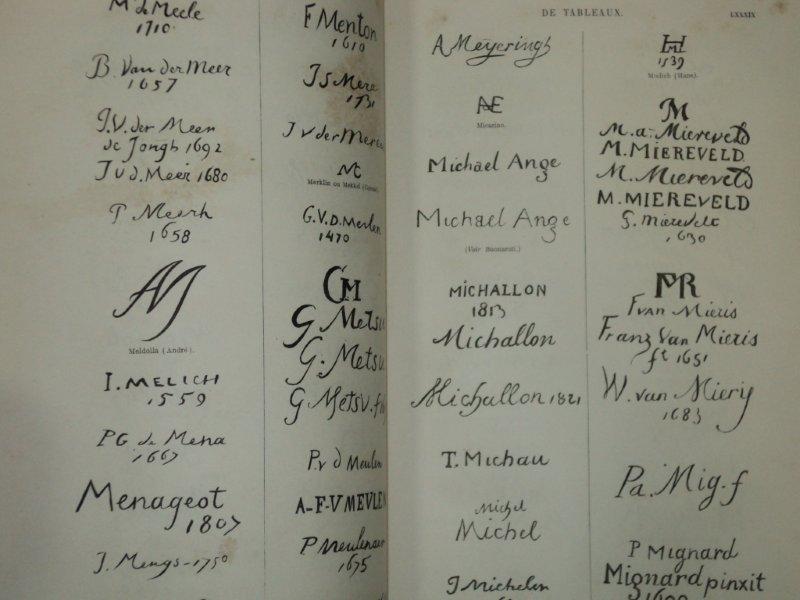 M de Meele
1710
B. Van der Meer
1657
J. V. der Meer
de Jongh 1692
J V d. Meer 1680
P Meerh
1658
AM
Meldolla (André).
I. MELICH
1559
PG de Mena
1667
Menageot
1807
J. Mengs-1750
F Menton
1610
J S Mere
1731
J v der Mere
M
Merklin ou Mekkel
G. V. D. Merlen
1470
GM
G Metsu
G. Metsu.
G. Metsv. f
P. v d Meulen
A-F-V MEVLEN
P Meulenaer
1675
DE TABLEAUX.
LXXXIX
A Meyeringh
Micarino.
Michael Ange
Michael Ange
(Voir Buonaroti.)
MICHALLON
1813
Michallon
Michallon 1821
T. Michau
Michel
Michel
J Michelin
1539
Mielich (Hans).
M
M. a. Miereveld
M. MIEREVELD
M. Miereveld
M. MIEREVELD
G. Mierevelt
1630
F van Mieris
Franz Van Mieris
ft 1651
W. van Miery
1683
Pa. Mig. f
P Mignard
Mignard pinxit
1690